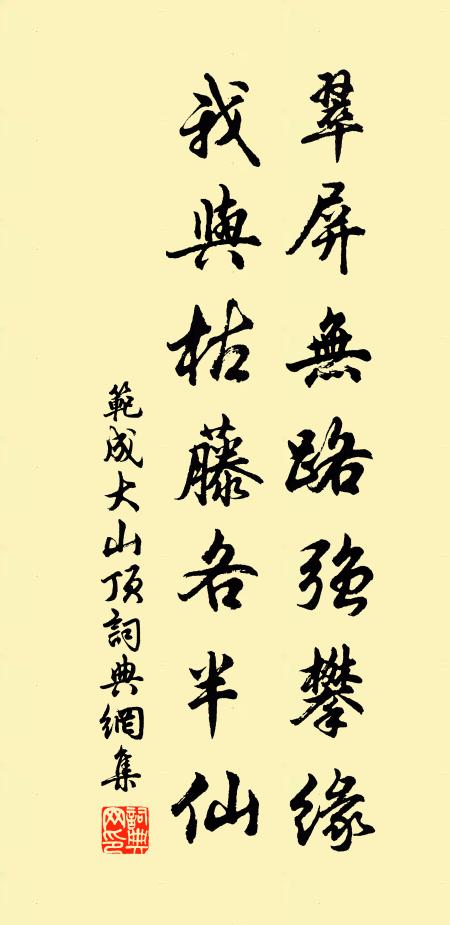 翠屏無路強攀緣
我與枯藤各半仙
範成大山頂詞典網集
詞典
网印